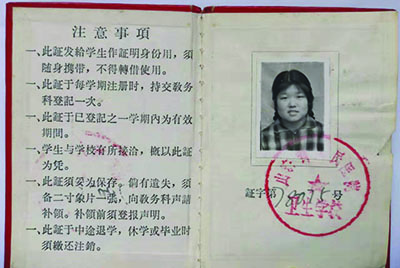 注意事項
一、此証发給学生作証明身份用，須
随身攜带，不得轉借使用。
一、此証于每学期注册时，持交教务
科登記一次。
一、此証于已登記之一学期內为有效
期間。
一、学生与学校有所接洽，概以此証
为凭。
一、此証須妥为保存。倘有遺失，須
备二寸象片一張，向教务科声請
补領。补領前須登报声明。
一、此証于中途退学，休学或毕业时
須繳还注銷。
証字第 号